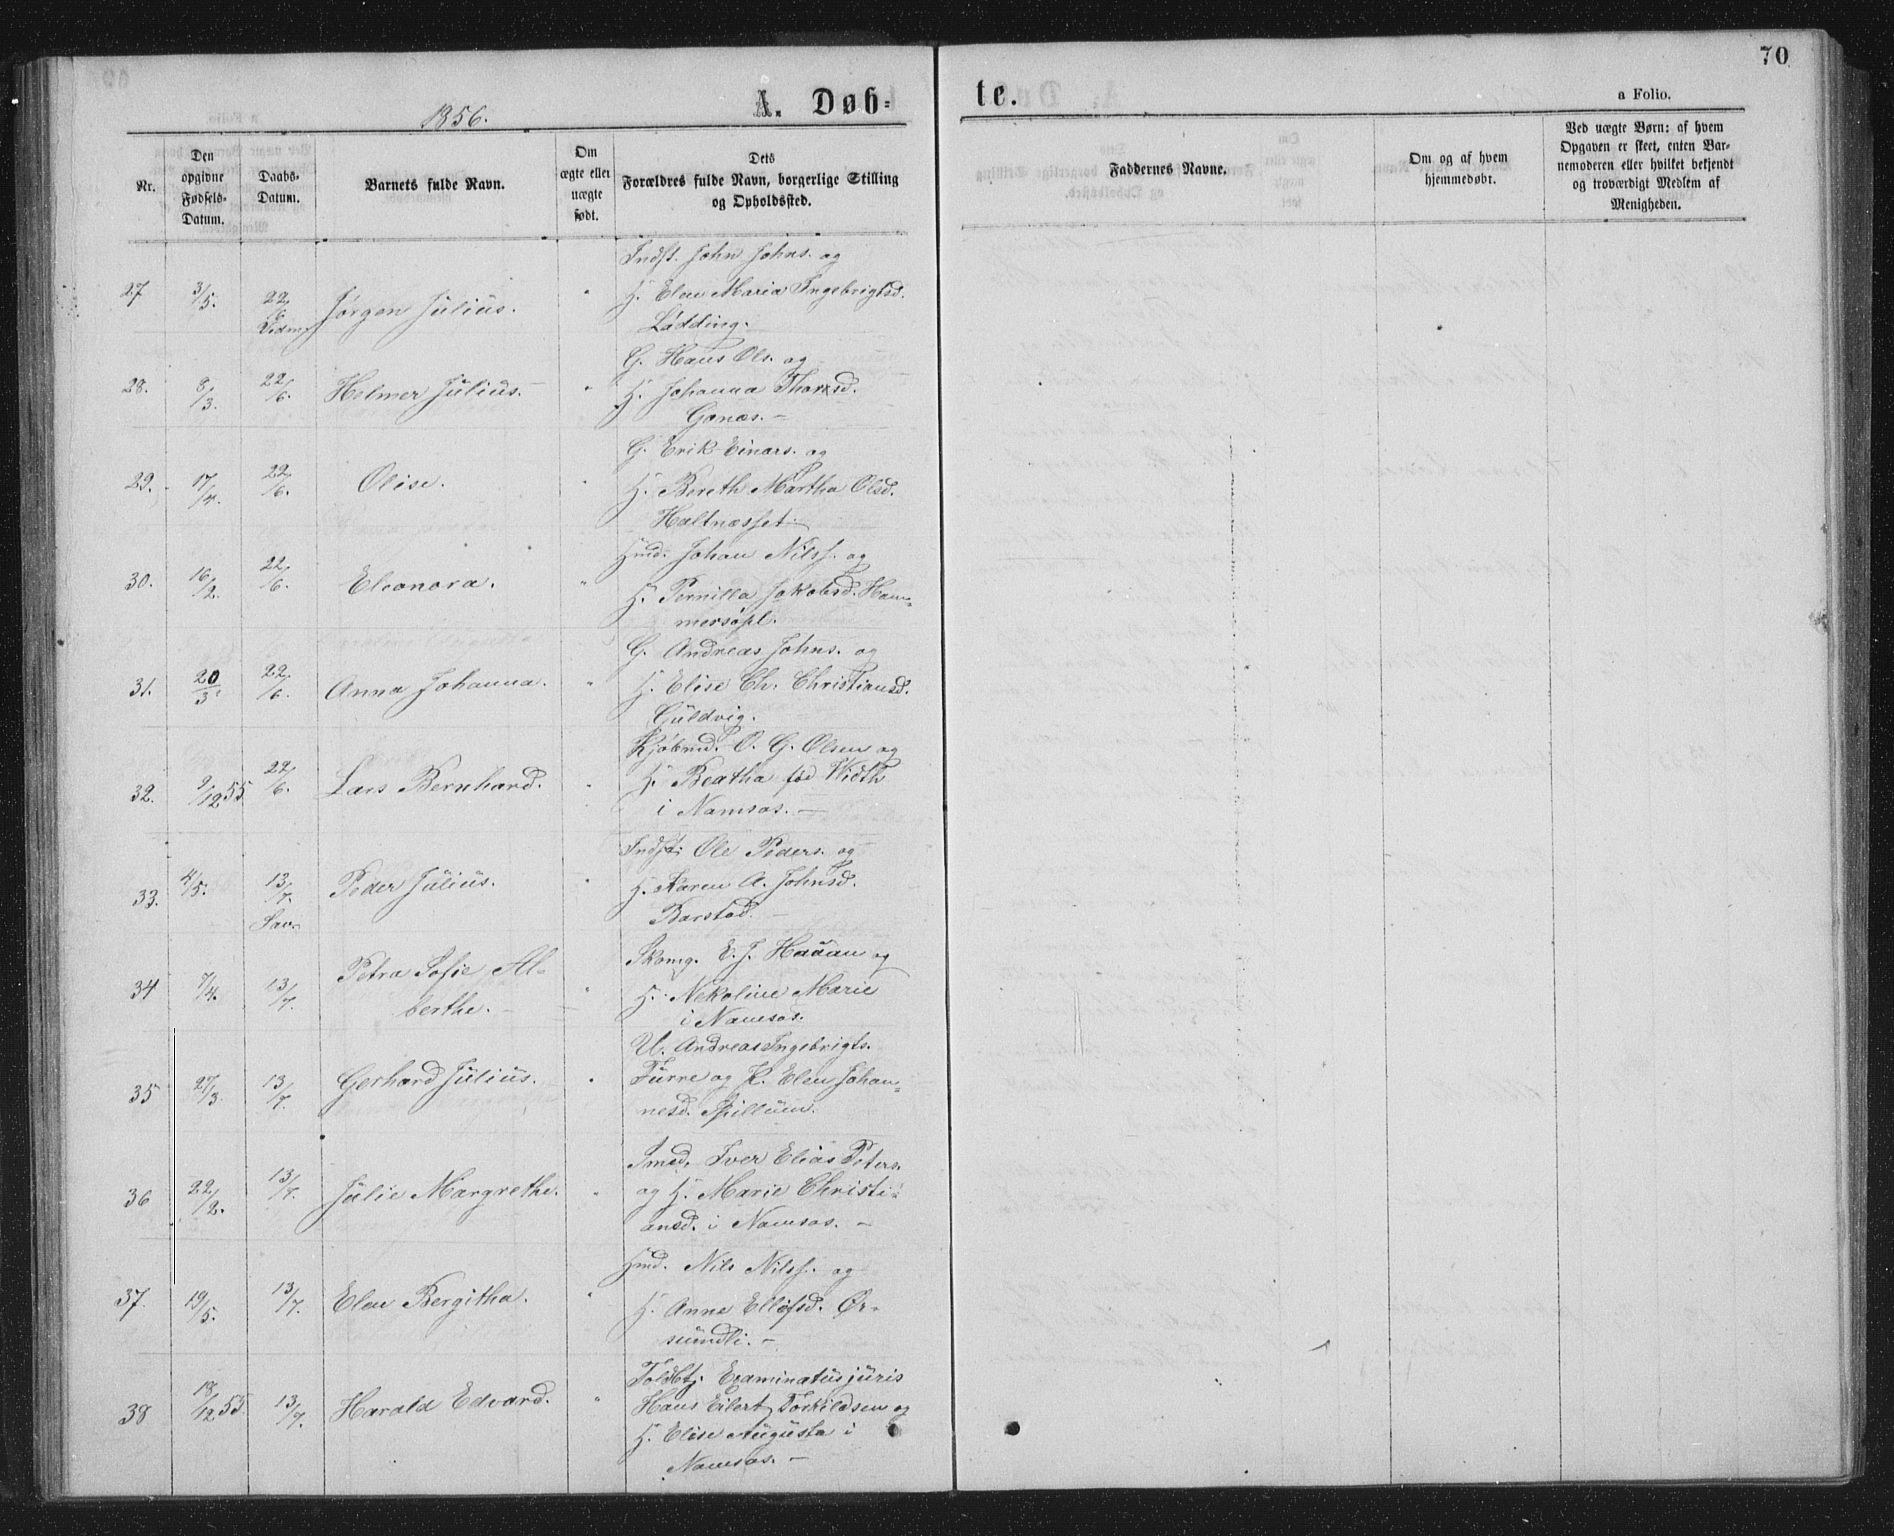 70
1856.
A. Døb-
te.
a Folio.
Nr.
Den
opgivne
Fødsels-
Datum.
Daabs-
Datum.
Barnets fulde Navn.
Om
ægte eller
uægte
født.
Dets
Forældres fulde Navn, borgerlige Stilling
og Opholdssted.
Faddernes Navne.
Om og af hvem
hjemmedøbt.
Ved uægte Børn: af hvem
Opgaven er skeet, enten Bar-
nemoderen eller hvilket bekjendt
og troværdigt Medlem af
Menigheden.
Indst. John Johns. og
27 3/5. 22/6 Jørgen Julius. " H. Elen Maria Ingebrigtsd.
Lødding.
G. Hans Ols. og
28. 8/3. 22/6. Helmer Julius. " H. Johanna Thorsd.
Gansæs.
G. Erik Einars. og
29. 17/4. 22/6. Olise. " H. Bereth Martha Olsd.
Haltnæsset.
Hmd. Johan Nilss. og
30. 16/2. 22/6. Eleonora. " H. Pernilla Jakobsd. Ham-
mersøpl.
G. Andreas Johns. og
31. 20/3. 22/6. Anna Johanna. " H. Elise Ch. Christiansd.
Guldvig.
Kjøbmd. O. G. Olsen og
32. 9/12 55 22/6. Lars Bernhard. " H. Beatha fød Width
i Namsos. —
Indst. Ole Peders. og
33. 4/5. 13/7. Peder Julius. " H. Karen A. Johnsd.
Sav. Barstad. —
Skomg. E. J. Haaan og
34 7/4. 13/7. Petra Sofie Al-
berthe. — " H. Nekoline Marie
i Namsos.
U. Andreas Ingebrigts.
35 27/3. 13/7. Gerhard Julius. " Furre og P. Elen Johan-
nesd. Spillum.
Smed. Iver Elias Peters.
36 22/2. 13/7. Julie Margrethe. " og H. Marie Christi-
ansd. i Namsos. —
Hmd. Nils Nilss. og
37. 19/5. 13/7. Elen Bergitha. " H. Anne Ellefsd. Ør-
sundli. —
Toldbtj. Examinatus juris
38 18/12 55. 13/7. Harald Edvard. " Hans Eilert Torkildsen og
H. Elise Augusta i
Namsos. —